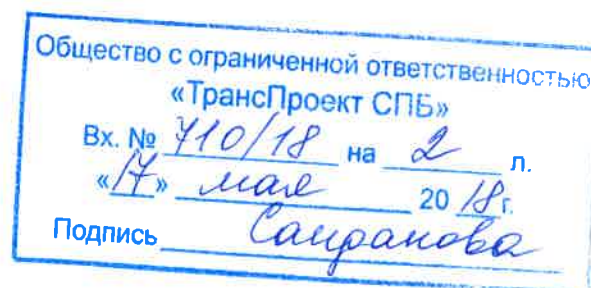 Общество с ограниченной ответственностью
«ТрансПроект СПБ»
Вх. № 710/18 на 2 л.
«17» мая 2018г.
Подпись